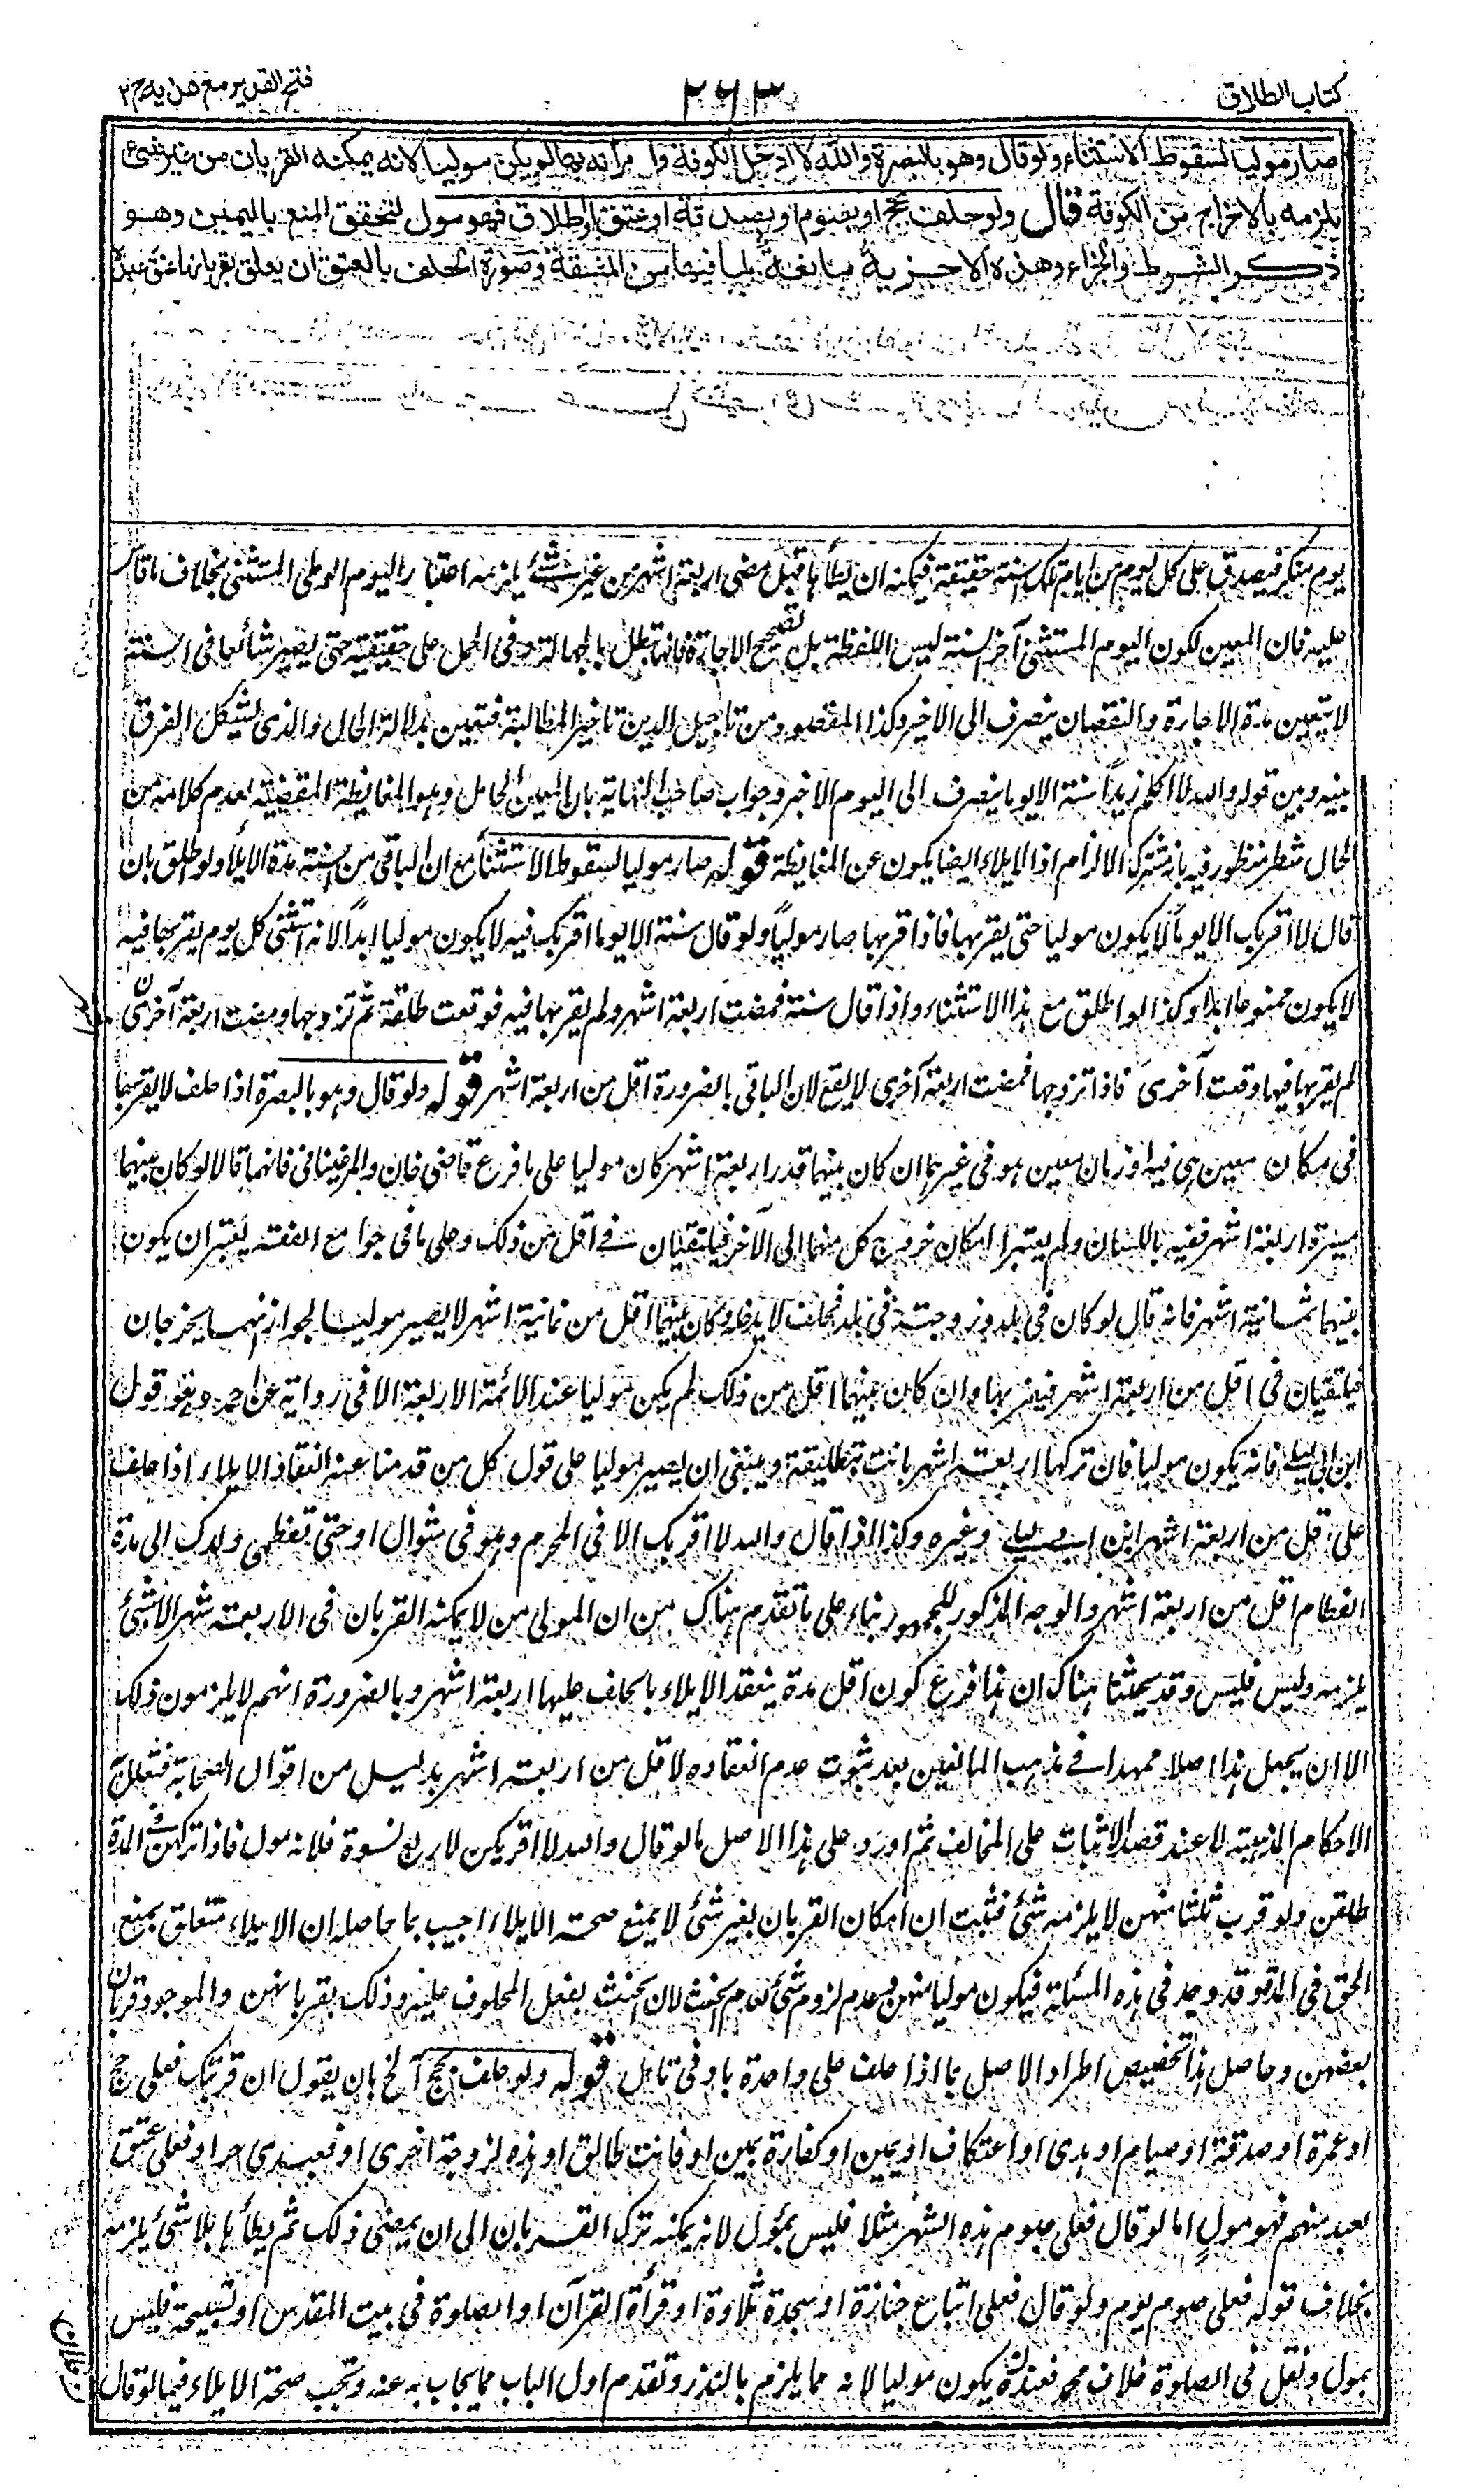 كتاب الطلاق
٢٦٣
فتح القدير مع هدايه ج ٢
صار موليا لسقوط الاستثناء ولو قال وهو بالبصرة والله لا ادخل الكوفة وامرأته بها لم يكن موليا لانه يمكنه القربان من غير شئ
يلزمه بالاخراج من الكوفة قال ولو حلف بحج او بصوم او بصدقة او عتق او طلاق فهو مول لتحقق المنع باليمين وهو
ذكر الشرط والجزاء وهذه الاجزية مانعة لما فيها من المشقة وصورة الحلف بالعتق ان يعلق بقربانها عتق عبده
يوم منكر فيصدق على كل يوم من ايام تلك السنة حقيقة فيمكنه ان يطأها قبل مضى اربعة اشهر من غير شئ يلزمه اعتبار اليوم الوطى المستثنى بخلاف ما قاس
عليه فان المعين لكون اليوم المستثنى آخر السنة ليس اللفظة بل تصحيح الاجازة فانها تبطل بالجهالة وفى الحمل على حقيقته حتى يصير شائعا فى السنة
لا يتعين مدة الاجارة والنقصان ينصرف الى الاخير وكذا المقصود من تاجيل الدين تاخير المطالبة فتعين بدلالة الحال والذى يشكل الفرق
بينه وبين قوله والله لا اكلم زيدا سنة الا يوما ينصرف الى اليوم الاخير وجواب صاحب النهاية بان المعين الحامل وهو المغايظة المقتضية لعدم كلامه من
الحال شطر منظور فيه بانه مشترك الالزام اذ الايلاء ايضا يكون عن المغايظة قوله صار موليا لسقوط الاستثناء مع ان الباقى من السنة مدة الايلاء ولو اطلق بان
قال لا اقربك الا يوما لا يكون موليا حتى يقربها فاذا قربها صار موليا ولو قال سنة الا يوما اقربك فيه لا يكون موليا ابدا لانه استثنى كل يوم يقربها فيه
لا يكون ممنوعا ابدا وكذا لو اطلق مع هذا الاستثناء واذا قال سنة فمضت اربعة اشهر ولم يقربها فيه فوقعت طلقة ثم تزوجها ومضت اربعة آخرى
لم يقربها فيها وقعت آخرى فاذا تزوجها فمضت اربعة آخرى لا يقع لان الباقى بالضرورة اقل من اربعة اشهر قوله ولو قال وهو بالبصرة اذا حلف لا يقربها
فى مكان معين هى فيه او زمان معين هو فى غيرهما ان كان بينهما قدر اربعة اشهر كان موليا على ما فرع قاضى خان والمرغينانى فانهما قالا لو كان بينهما
مسيرة اربعة اشهر ففيه باللسان ولم يعتبرا امكان خروج كل منهما الى الآخر فيلتقيان فى اقل من ذلك وعلى ما فى جوامع الفقه يعتبر ان يكون
بينهما ثمانية اشهر فانه قال لو كان فى بلد وزوجته فى بلد فحلف لا يدخله وكان بينهما اقل من ثمانية اشهر لا يصير موليا لجواز انهما يخرجان
فيلتقيان فى اقل من اربعة اشهر فيقربها وان كان بينهما اقل من ذلك لم يكن موليا عند الائمة الاربعة الا فى رواية عن احمد وهو قول
ابن ابى ليلى فانه يكون موليا فان تركها اربعة اشهر بانت بتطليقة وينبغى ان يصير موليا على قول كل من قدمنا عنه انعقاد الايلاء اذا حلف
على اقل من اربعة اشهر ابن ابى ليلى وغيره وكذا اذا قال والله لا اقربك الا فى المحرم وهو فى شوال او حتى تفطمى ولدك الى مدة
الفطام اقل من اربعة اشهر والوجه المذكور للجمهور بناء على ما تقدم هناك من ان المولى من لا يمكنه القربان فى الاربعة شهر الا بشئ
يلزمه وليس فليس وقد بحثنا هناك ان هذا فرع كون اقل مدة ينعقد الايلاء بالحلف عليها اربعة اشهر وبالضرورة انهم لا يلزمون ذلك
الا ان يجعل هذا اصلا ممهدا فى مذهب المانعين بعد ثبوت عدم انعقاده لاقل من اربعة اشهر بدليل من اقوال الصحابة فتعلل به
الاحكام المذهبية لا عند قصد الاثبات على المخالف ثم اورد على هذا الاصل ما لو قال والله لا اقربكن لاربع نسوة فلانه مول فاذا تركهن فى المدة
طلقن ولو قرب ثلثا منهن لا يلزمه شئ فثبت ان امكان القربان بغير شئ لا يمنع صحة الايلاء اجيب بما حاصله ان الايلاء متعلق بمنع
الحق فى المدة وقد وجد فى هذه المسئلة فيكون موليا منهن وعدم لزوم شئ لعدم الحنث لان الحنث بفعل المحلوف عليه وذلك بقربانهن والموجود قربان
بعضهن وحاصل هذا تخصيص اطراد الاصل بما اذا حلف على واحدة باو فى تامل قوله ولو حلف بحج آلخ بان يقول ان قربتك فعلى حج
او عمرة او صدقة او صيام او هدى او اعتكاف او يمين او كفارة يمين او فانت طالق او هذه لزوجة اخرى او فعبدى حر او فعلى عتق
لعبد منهم فهو مول اما لو قال فعلى صوم هذه الشهر مثلا فليس بمول لانه يمكنه ترك القربان الى ان يمضى ذلك ثم يطأها بلا شئ يلزمه
بخلاف قوله فعلى صوم يوم ولو قال فعلى اتباع جنازة او سجدة تلاوة او قرأة القرآن او الصلوة فى بيت المقدس او تسبيحة فليس
بمول ونقل فى الصلوة خلاف محمد فعنده يكون موليا لانه مما يلزم بالنذر وتقدم اول الباب مما يجاب به عنه وتجب صحة الايلاء فيما لو قال